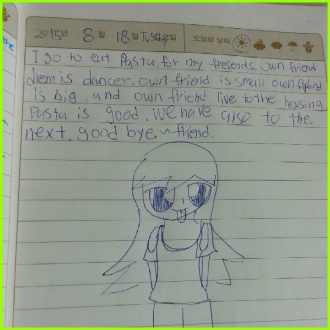 2015년 8월 18일 Tuesday요일 오늘의 날씨
I go to eat Pasta, for my friends. own friend
diem is dancer. own friend is small own friend
is big. and own friend live to the housing
Pasta is good. We have also to the
next. good bye ~friend.